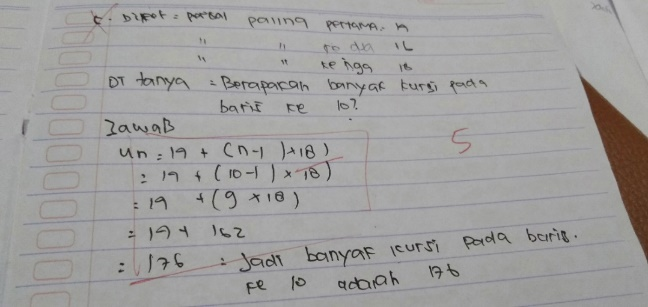 Diket = pada paling pertama. 14
" " ke dua 16
" " ke tiga 18
Di tanya = Berapakah banyak kursi pada
baris ke 10?
Jawab
Un = 14 + (n-1) × 18)
= 14 + (10-1) × 18)
= 14 + (9 × 18)
= 14 + 162
= 176 = Jadi banyak kursi pada baris.
ke 10 adalah 176
5